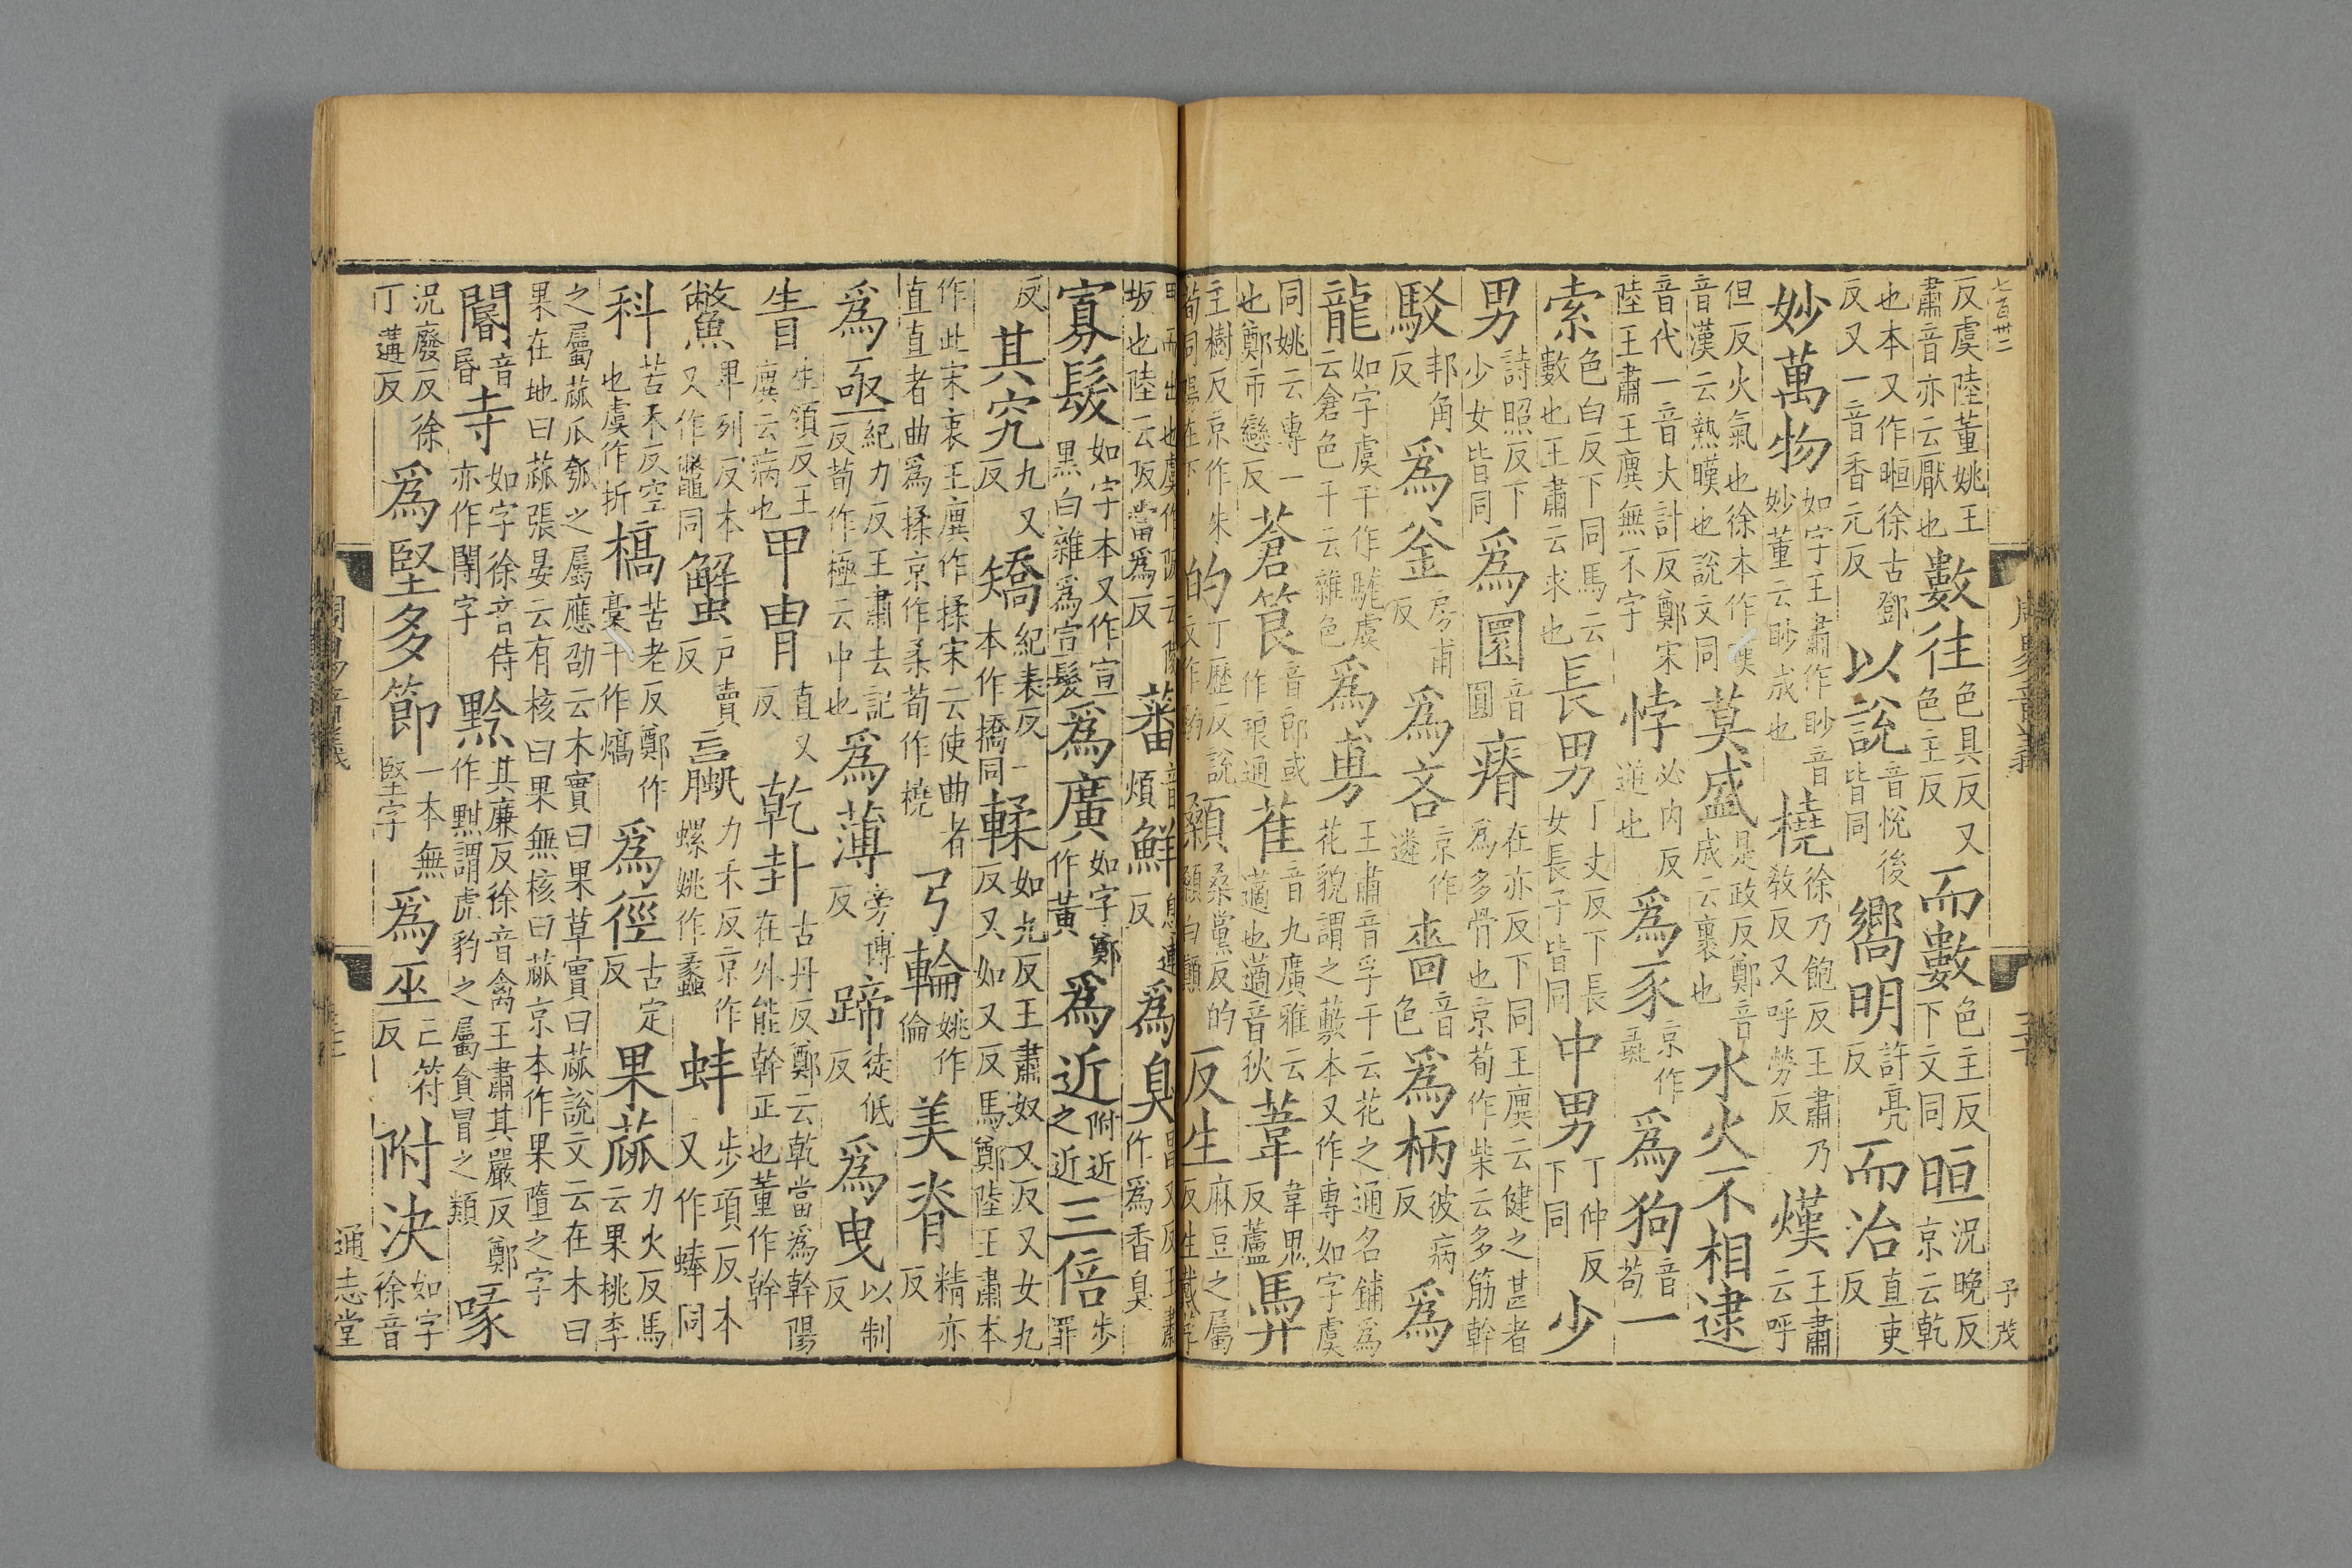 七百卅二
反虞陸董姚王肅音亦云厭也數往色具反又色主反而數色主反下文同晅況晚反京云乾
也本又作晅徐古鄧反又一音香元反以說音悅後皆同嚮明許亮反而治直吏反
妙萬物如字王肅作眇音妙董云眇成也橈徐乃飽反王肅乃敎反又呼勞反熯王肅云呼
但反火氣也徐本作暵音漢云熱暵也說文同莫盛是政反鄭音成云裹也水火不相逮
音代一音大計反鄭宋陸王肅王廙無不字悖必內反逆也爲豕京作彘爲狗音苟一
索色白反下同馬云數也王肅云求也長男丁丈反下長女長子皆同中男丁仲反下同少
男詩照反下少女皆同爲圜音圓瘠在亦反下同王廙云健之甚者爲多骨也京荀作柴云多筋幹
駁邦角反爲釜房甫反爲吝京作遴嗇音色爲柄彼病反爲
龍如字虞干作駹虞云倉色干云雜色爲旉王肅音孚干云花之通名鋪爲花貌謂之藪本又作專如字虞
同姚云專一也鄭市戀反蒼筤音郎或作琅通萑音九廣雅云薍也薍音狄葦韋鬼反蘆馵
主樹反京作朱荀同陽在下的丁歷反說文作馰顙桑黨反的顙白顛反生麻豆之屬反生戴莩
甲而出也虞作阪云陵阪也陸云阪當爲反蕃音煩鮮息連反爲臭昌又反王肅作爲香臭
寡髮如字本又作宣黑白雜爲宣髮爲廣如字鄭作黃爲近附近之近三倍步罪
反其究九又反矯紀表反一本作撟同輮如九反王肅奴又反又女九反又如又反馬鄭陸王肅本
作此宋衷王廙作揉宋云使曲者直直者曲爲揉京作柔荀作橈弓輪姚作倫美脊精亦反
爲亟紀力反王肅去記反荀作極云中也爲薄旁博反蹄徒低反爲曳以制反
眚生領反王廙云病也甲冑直又反乾卦古丹反鄭云乾當爲幹陽在外能幹正也董作幹
鱉卑列反本又作鼈同蟹戶賣反蠃力禾反京作螺姚作蠡蚌步項反本又作蜯同
科苦禾反空也虞作折槁苦老反鄭作槀干作熇爲徑古定反果蓏力火反馬云果桃李
之屬蓏瓜瓠之屬應劭云木實曰果草實曰蓏說文云在木曰果在地曰蓏張晏云有核曰果無核曰蓏京本作果墮之字
閽音昏寺如字徐音侍亦作閽字黔其廉反徐音禽王肅其嚴反鄭作黚謂虎豹之屬貪冒之類喙
況廢反徐丁遘反爲堅多節一本無堅字爲巫亡符反附決如字徐音
予茂
通志堂